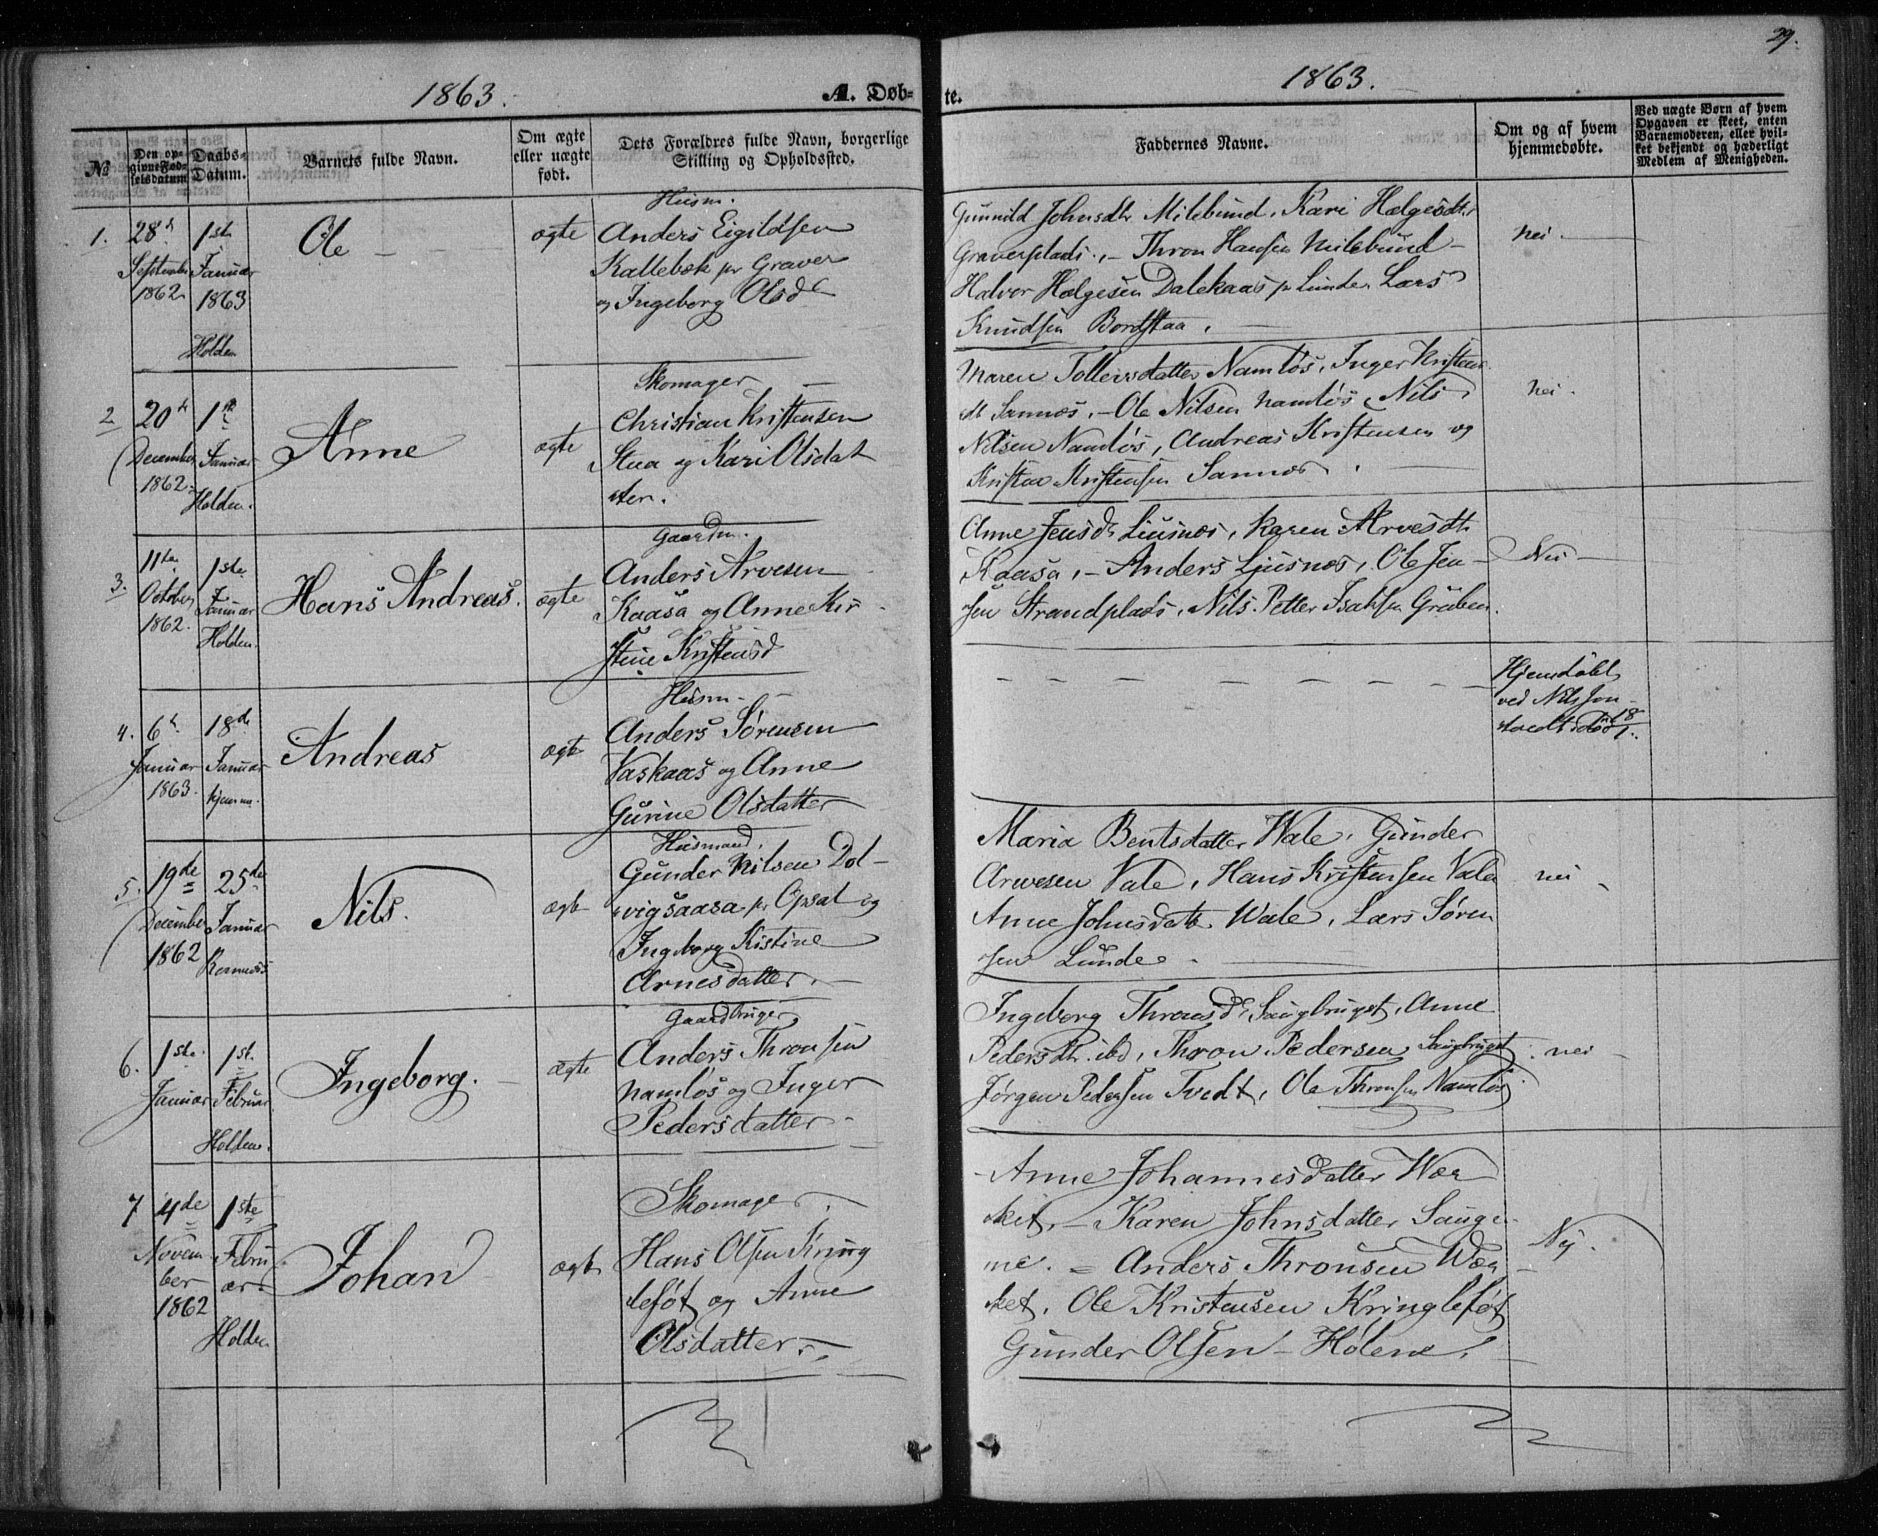 29.
1863. A. Døb-
te. 1863.
№
Den op-
givne Fød-
selsdatum
Daabs-
Datum.
Barnets fulde Navn.
Om ægte
eller uægte
født.
Dets Forældres fulde Navn, borgerlige
Stilling og Opholdssted.
Faddernes Navne.
Om og af hvem
hjemmedøbte.
Ved uægte Børn af hvem
Opgaven er skeet, enten
Barnemoderen, eller hvil-
ket bekjendt og hæderligt
Medlem af Menigheden.
1.
28d
September
1862
1ste
Januar
1863
Holden
Ole
ægte
Husm.
Anders Eigildsen
Kallebæk pr Graver
og Ingeborg Olsd
Gunnild Johnsdtr Milebund, Kari Helgesdtr
Graverplads, - Thron Hansen Milebund
Halvor Helgesen Dalekaas pr Lunde, Lars
Knudsen Bordstaa.
nei.
2
20d
December
1862
1ste
Januar
Holden.
Anne
ægte
Skomager
Christian Kristensen
Stua og Kari Olsdat
ter.
Maren Tollevsdatter Namløs, Inger Kristens
dt Sannæs, - Ole Nilsen Namløs, Nils
Nilsen Namløs, Andreas Kristensen og
Kristen Kristensen Sannæs.
nei.
3.
11te
October
1862.
1ste
Januar
Holden.
Hans Andreas.
ægte
Gaardm.
Anders Arvesen
Kaasa og Anne Kir
stine Kristensd
Anne Jensdt Ljusnæs, Karen Arvesdt.
Kaasa, - Anders Ljusnæs, Ole Jen-
sen Strandplads, Nils Petter Isaksen Gruben.
Nei
4.
6t
Januar
1863.
18de
Januar
hjemme.
Andreas
ægte
Husm.
Anders Sørensen
Vaskaas og Anne
Gurine Olsdatter
Hjemdøbt
ved Nils Jon-
død 18/1.
5.
19de
December
1862
25de
Januar
Romnæs
Nils.
ægte
Husmand.
Gunder Nilsen Dol-
vigsaasa pr Opsal og
Ingeborg Kistine
Arnesdatter.
Maria Bentsdatter Wale, Gunder
Arvesen Vale, Hans Kristensen Vala
Anne Johnsdatt Wale, Lars Søren
sen Lunde.
nei
6.
1ste
Januar
1st.
Februar
Holden.
Ingeborg.
ægte
Gaardbruger
Anders Thronsen
Namløs og Inger
Pedersdatter
Ingeborg Thronsd Saugbruget, Anne
Pedersdtr. ibd, Thron Pedersen Saugbruget
Jørgen Pedersen Tvedt, Ole Thronsen Namløs
nei
7
4de
Novem
ber
1862
1ste
Febru
ar
Holden
Johan
ægte
Skomager
Hans Olsen Kring
leføt og Anne
Olsdatter.
Anne Johannesdatter Wær
ket, - Karen Johnsdatter Sauge
ne. = Anders Thronsen Wær
ket, Ole Kristensen Kringleføt
Gunder Olsen - Hølene,
Nej.